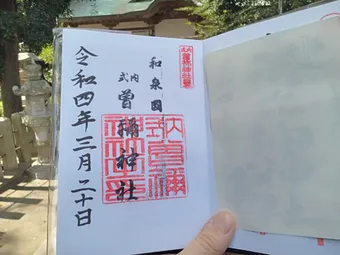 和泉國
式内
曽禰神社
令和四年三月二十日